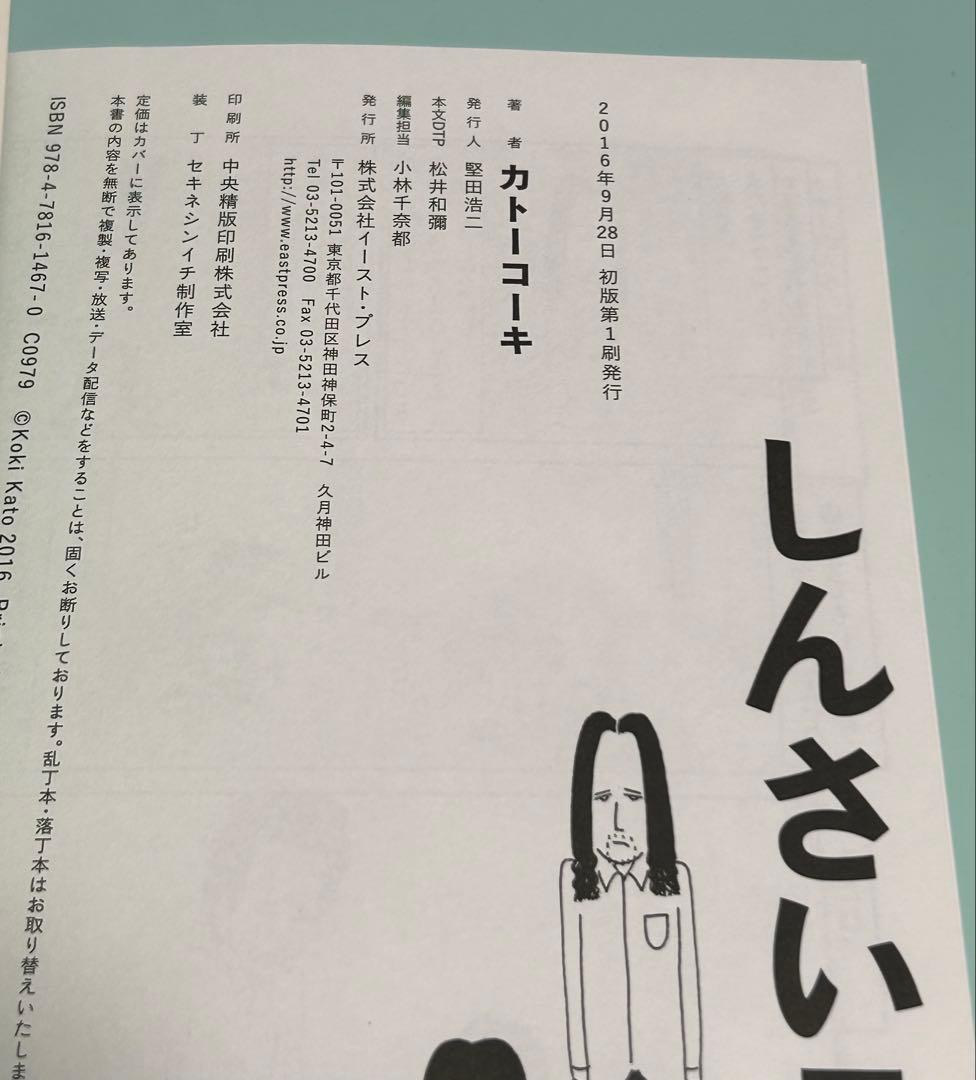 しんさい
2016年9月28日 初版第1刷発行
著者 カトーコーキ
発行人 堅田浩二
本文DTP 松井和彌
編集担当 小林千奈都
発行所 株式会社イースト・プレス
〒101-0051 東京都千代田区神田神保町2-4-7 久月神田ビル
Tel 03-5213-4700 Fax 03-5213-4701
http://www.eastpress.co.jp
印刷所 中央精版印刷株式会社
装丁 セキネシンイチ制作室
定価はカバーに表示してあります。
本書の内容を無断で複製・複写・放送・データ配信などをすることは、固くお断りしております。乱丁本・落丁本はお取り替えいたしま
ISBN 978-4-7816-1467-0 C0979 ©Koki Kato 2016